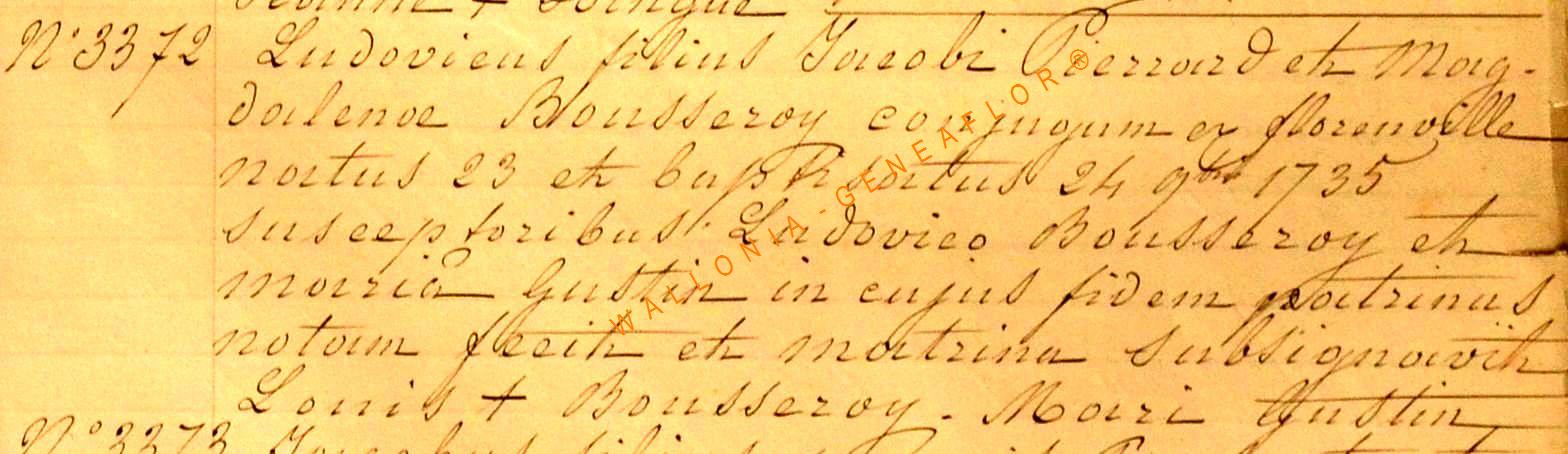 N° 3372 Ludovicus filius Jacobi Pierrard et Mag-
dalenae Bousseroy conjugum ex florenville
natus 23 et baptisatus 24 9bris 1735
susceptoribus Ludovico Bousseroy et
maria Gustin in cujus fidem patrinus
notam fecit et matrina subsignavit
Louis + Bousseroy. Mari Gustin
N° 3373 Josephus filius
WALLONIA-GENEAFLOR®